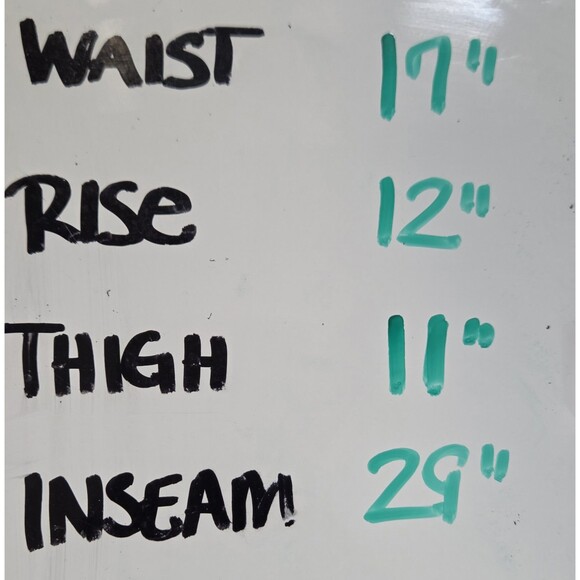 WAIST 17"
RISE 12"
THIGH 11"
INSEAM 29"